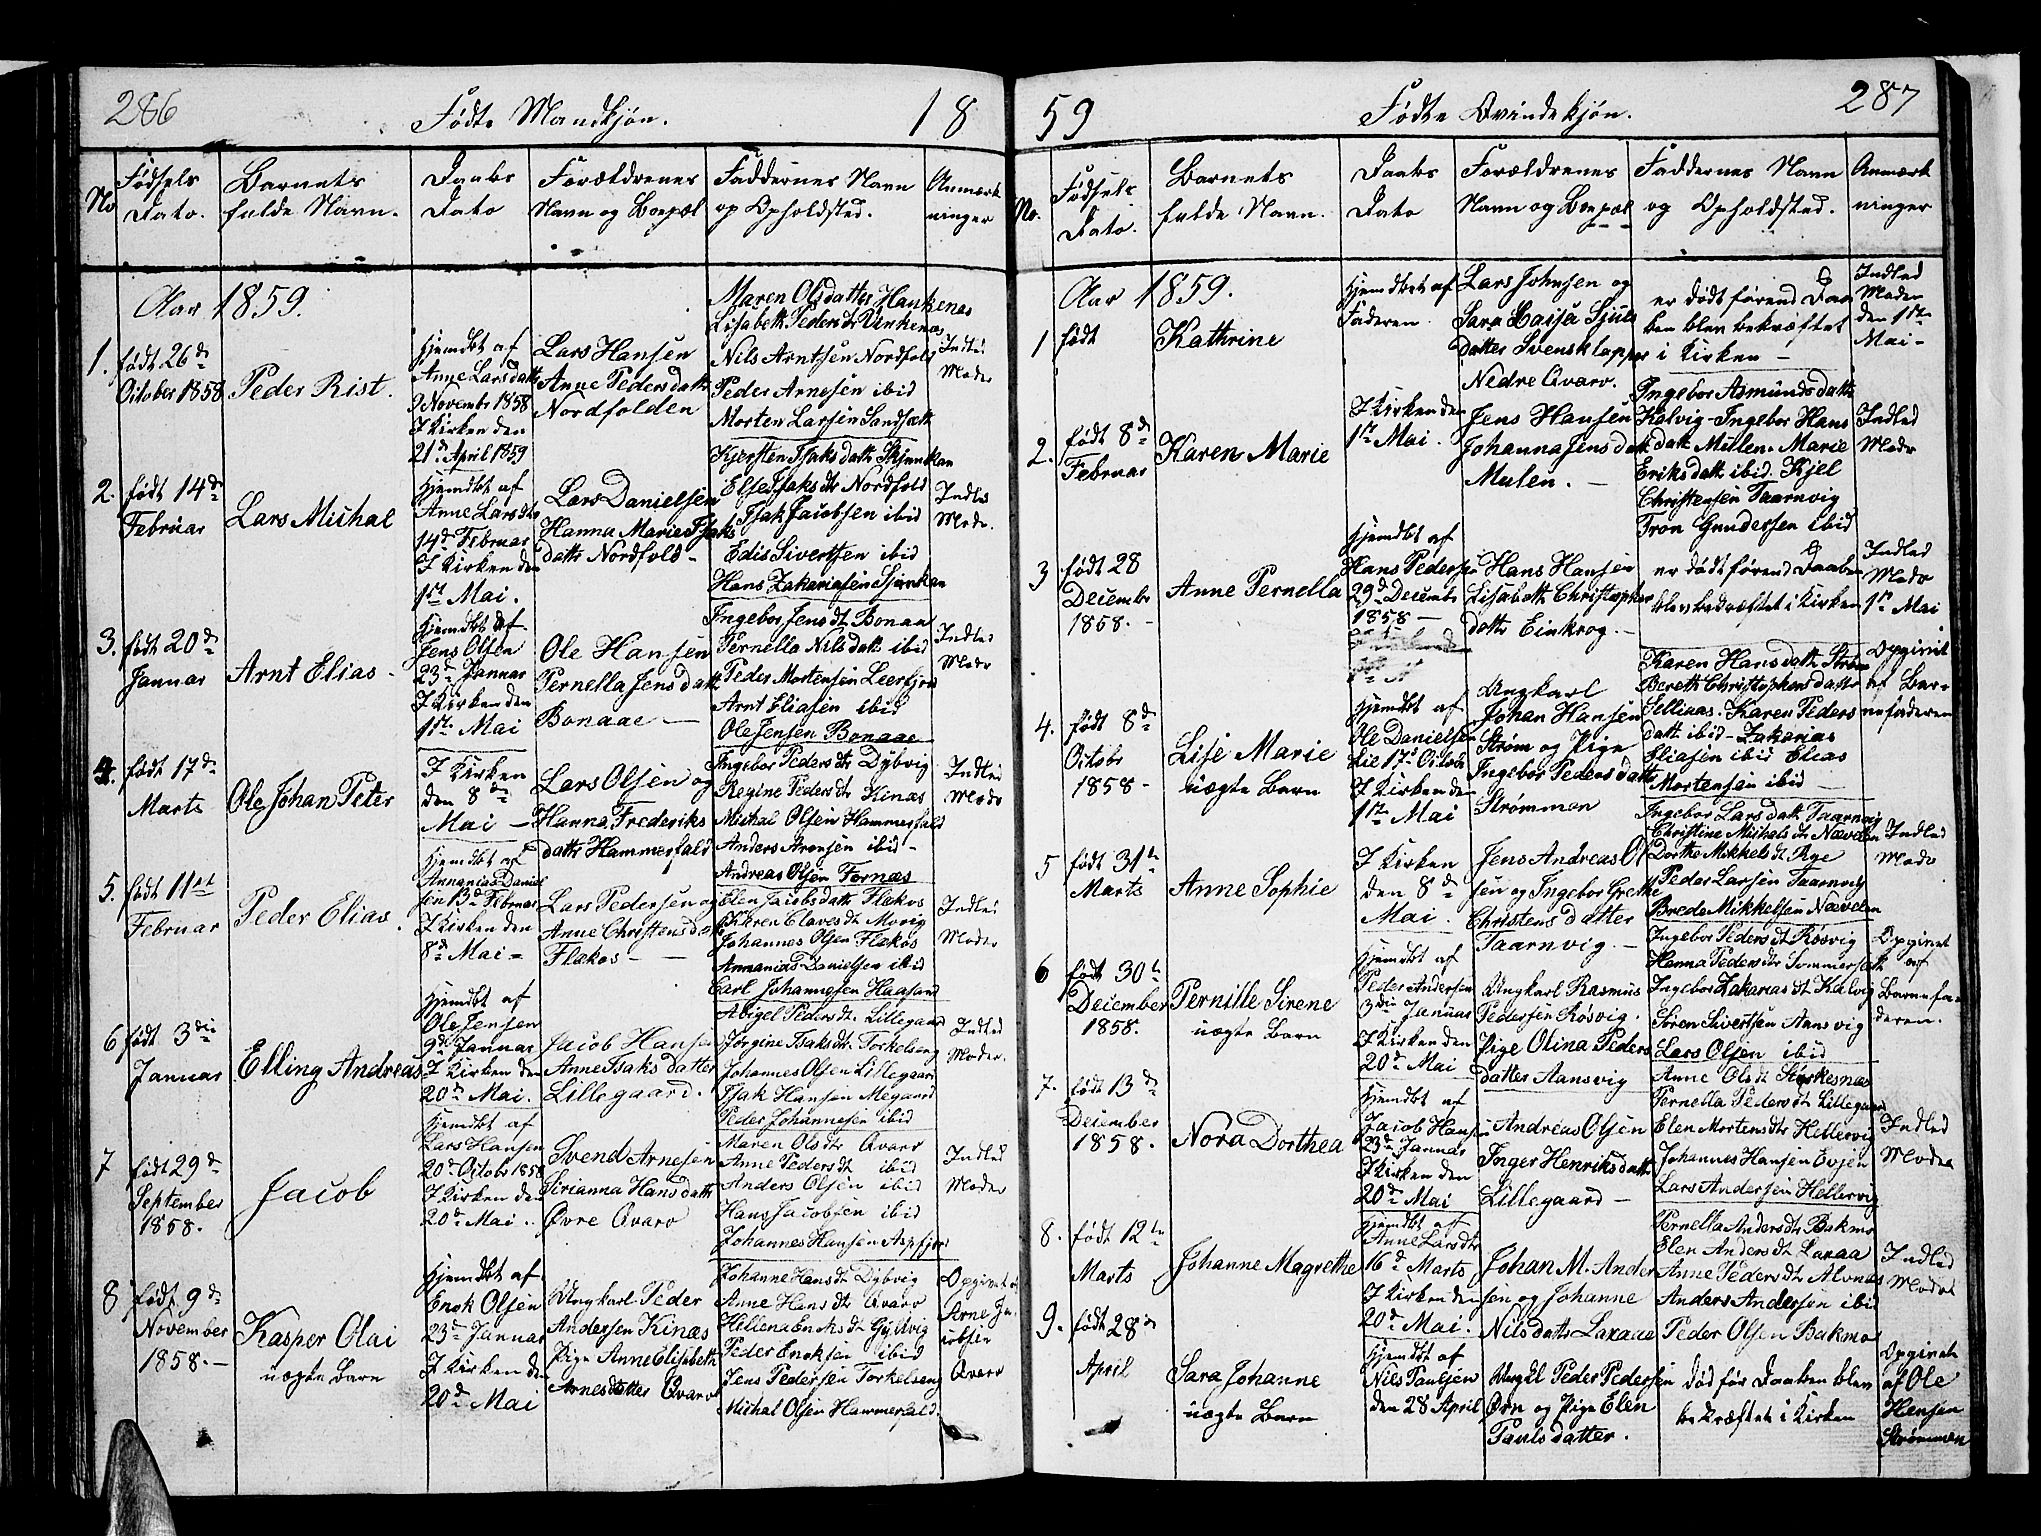 286
Fødte Mandkjøn.
18
No
Fødsels Dato.
Barnets fulde Navn.
Daabs Dato
Forældrenes Navn og Boepæl
Faddernes Navn og Opholdsted.
Anmærkninger
Aar 1859.
1. født 26de October 1858
Peder Rist.
Hjemdbt af
Anne Larsdatt
9 Novembr 1858
I Kirken den
21de April 1859
Lars Hansen
Anne Pedersdatt
Nordfolden
Maren Olsdatter
Lisabeth Pedersdtr
Nils Arntsen Nordfold
Peder Arnesen ibid
Morten Larsen Sandsæth
Indled
Moder
2. født 14de
Februar
Lars Michal
Hjemdbt af
Anne Larsdtr
14de Februar
I Kirken den
1ste Mai.
Lars Danielsen
Hanna Marie Isaks
datter Nordfold -
Kjersten Isaksdatt
Else Isaksdtr Nordfold
Isak Jacobsen ibid
Edis Sivertsen ibid
Hans Zakariasen
Indled
Modr.
3. født 20de
Januar
Arnt Elias -
Hjemdbt af
Jens Olsen
23de Januar
I Kirken den
1ste Mai
Ole Hansen
Pernella Jensdatt
Bonaae -
Ingebor Jensdt Bonaae
Pernella Nilsdatt ibid
Peder Mortensen Leerfjord
Arnt Eliasen ibid
Ole Jensen Bonaae
Indled
Modr
4. født 17de
Marts
Ole Johan Peter
I Kirken
den 8de
Mai -
Lars Olsen og
Hanna Frederiks
datter Hammerfald
Ingebor Pedersdtr Dybvig
Regine Pedersdt Kinæs
Michal Olsen Hammerfald
Anders Arensen ibid -
Andreas Olsen Fornæs
Indled
Modr
5. født 11te
Februar
Peder Elias.
Hjemdbt af
Annanias Daniel
sen 13de Februar
I Kirken den
8de Mai -
Lars Pedersen og
Anne Christensdatt
Flakos -
Elen Jacobsdatt Flakos
Karen Elavesdt Movig
Johannes Olsen Flakos
Annanias Danielsen ibid
Carl Johannesen Haasand
Indled
Moder
6 født 3die
Januar
Elling Andreas
Hjemdbt af
Ole Jensen
9de Januar
I Kirken den
20de Mai.
Jacob Hansen
Anne Isaksdatter
Lillegaard.
Abigel Pedersdt. Lillegaard
Jørgine Isaksdtr Torkelseng
Johannes Olsen Lillegaard
Isak Hansen Megaard
Peder Johannesen ibid
Indled
Moder.
7 født 29de
September
1858.
Jacob
Hjemdbt af
Lars Hansen
20de Octobr 1858
I Kirken den
20de Mai.
Svend Arnesen
Sirianna Hansdatt
Øvre Qvarv
Maren Olsdtr Qvarv
Anne Pedersdt ibid
Anders Olsen ibid
Hans Jacobsen ibid
Johannes Hansen Aspfjord
Indled
Moder
8 født 9de
November
1858. -
Kasper Olai
uægte Barn
Hjemdbt af
Enok Olsen
23de Januar
I Kirken den
20de Mai
Ungkarl Peder
Andersen Kinæs
Pige Anne Elisabeth
Arnesdatter Qvarv
Johanne Hansdt Dybvig
Anne Hansdtr Qvarv
Hellena Enoksdt Gyltvig
Peder Enoksen ibid
Jens Pedersen Torkelseng
Michal Olsen Hammerfald.
Opgivet af
Arne Jacobsen
Qvarv
59
Fødte Qvindekjøn.
287
No.
Fødsels Dato.
Barnets fulde Navn.
Daabs Dato
Forældrenes Navn og Boepæl
Faddernes Navn og Opholdsted.
Anmærkninger
Aar 1859.
1 født
Kathrine
Hjemdbt af
Faderen.
Lars Johnsen og
Sara Caisa Sjuls
datter Svensklapper
Nedre Qvarv.
er dødt førend Daa
ben blev bekræftet
i Kirken -
Indled
Moder
den 1ste
Mai -
2. født 8de
Februar
Karen Marie
I Kirken den
1ste Mai.
Jens Hansen
Johanna Jensdatt
Mulen. -
Ingebor Asmundsdatt
Kalvig. Ingebor Hans
datt Mullen. Marie
Eriksdatt ibid. Kjel
Christensen Taarnvig
Tron Gundersen ibid
Indled
Modr
3 født 28
Decembr
1858. -
Anne Pernella
Hjemdbt af
Hans Pedersen
29de Decembr
1858 -
Hans Hansen
Lisabeth Christophers
datter Einkrog. -
er dødt førend Daaben
blev bekræftet i Kirken
Indled
Modr
1ste Mai
4. født 8de
Octobr
1858 -
Lise Marie
uægte Barn
Hjemdbt af
Ole Danielsen
die 17de Octobr
I Kirken den
1ste Mai
Ungkarl
Johan Hansen
Strøm og Pige
Ingebor Pedersdatt
Strømmen
Karen Hansdatt Strøm
Bereth Christophersdatter
Sellinas. Karen Peders
datt ibid - Zakarias
Eliasen ibid Elias
Mortensen ibid -
Opgivet
af Bar-
nefaderen
5 født 31te
Marts
Anne Sophie
I Kirken
den 8de
Mai.
Jens Andreas Ol
sen og Ingebor Grethe
Christensdatter
Taarnvig. -
Ingebor Larsdatt Taarnvig
Christine Michalsdtr Nævelen
Dorthe Mikkelsdt Rye
Peder Larsen Taarnvig
Breder Mikkelsen Nævelen
Indled
Modr
6 født 30te
December
1858.
Pernille Sirene
uægte Barn
Hjemdbt af
Peder Andersen
3die Januar
I Kirken den
20de Mai
Ungkarl Rasmus
Pedersen Røsvig.
Pige Olina Peders
datter Aansvig
Ingebor Pedersdt Røsvig
Hanna Pedersdtr Sommerseth
Ingebor Zakariasdt Kalvig
Søren Sivertsen Aansvig
Lars Olsen ibid
Opgivet
af
Barnefa-
deren.
7. født 13de
December
1858.
Nora Dorthea
Hjemdbt af
Jacob Hansen
23de Januar
I Kirken den
20de Mai
Andreas Olsen
Inger Henriksdatt
Lillegaard -
Anne Olsdt Storkesnæs
Pernella Pedersdt Lillegaard
Elen Mortensdtr Hellervig
Johannes Hansen Evjen
Lars Andersen Hellervig
Indled
Moder
8. født 12te
Marts
Johanne Magrethe
Hjemdbt af
Anne Larsdtr
16de Marts
I Kirken den
20de Mai.
Johan M. Ander
sen og Johanne
Nilsdatter Laxaae
Pernella Andersdtr Bakmo
Elen Andersdt Laxaa
Anne Pedersdtr Alvnes
Anders Andersen ibid
Peder Olsen Bakmo
Indled
Moder
9. født 28de
April
Sara Johanne
uægte Barn
Hjemdbt af
Nils Paulsen
den 28 April
Ungkl Peder Pedersen
Ørn og Pige Elen
Paulsdatter.
død før Daaben blev
bekræftet i Kirken
Opgivet
af Ole
Hansen
Strømmen